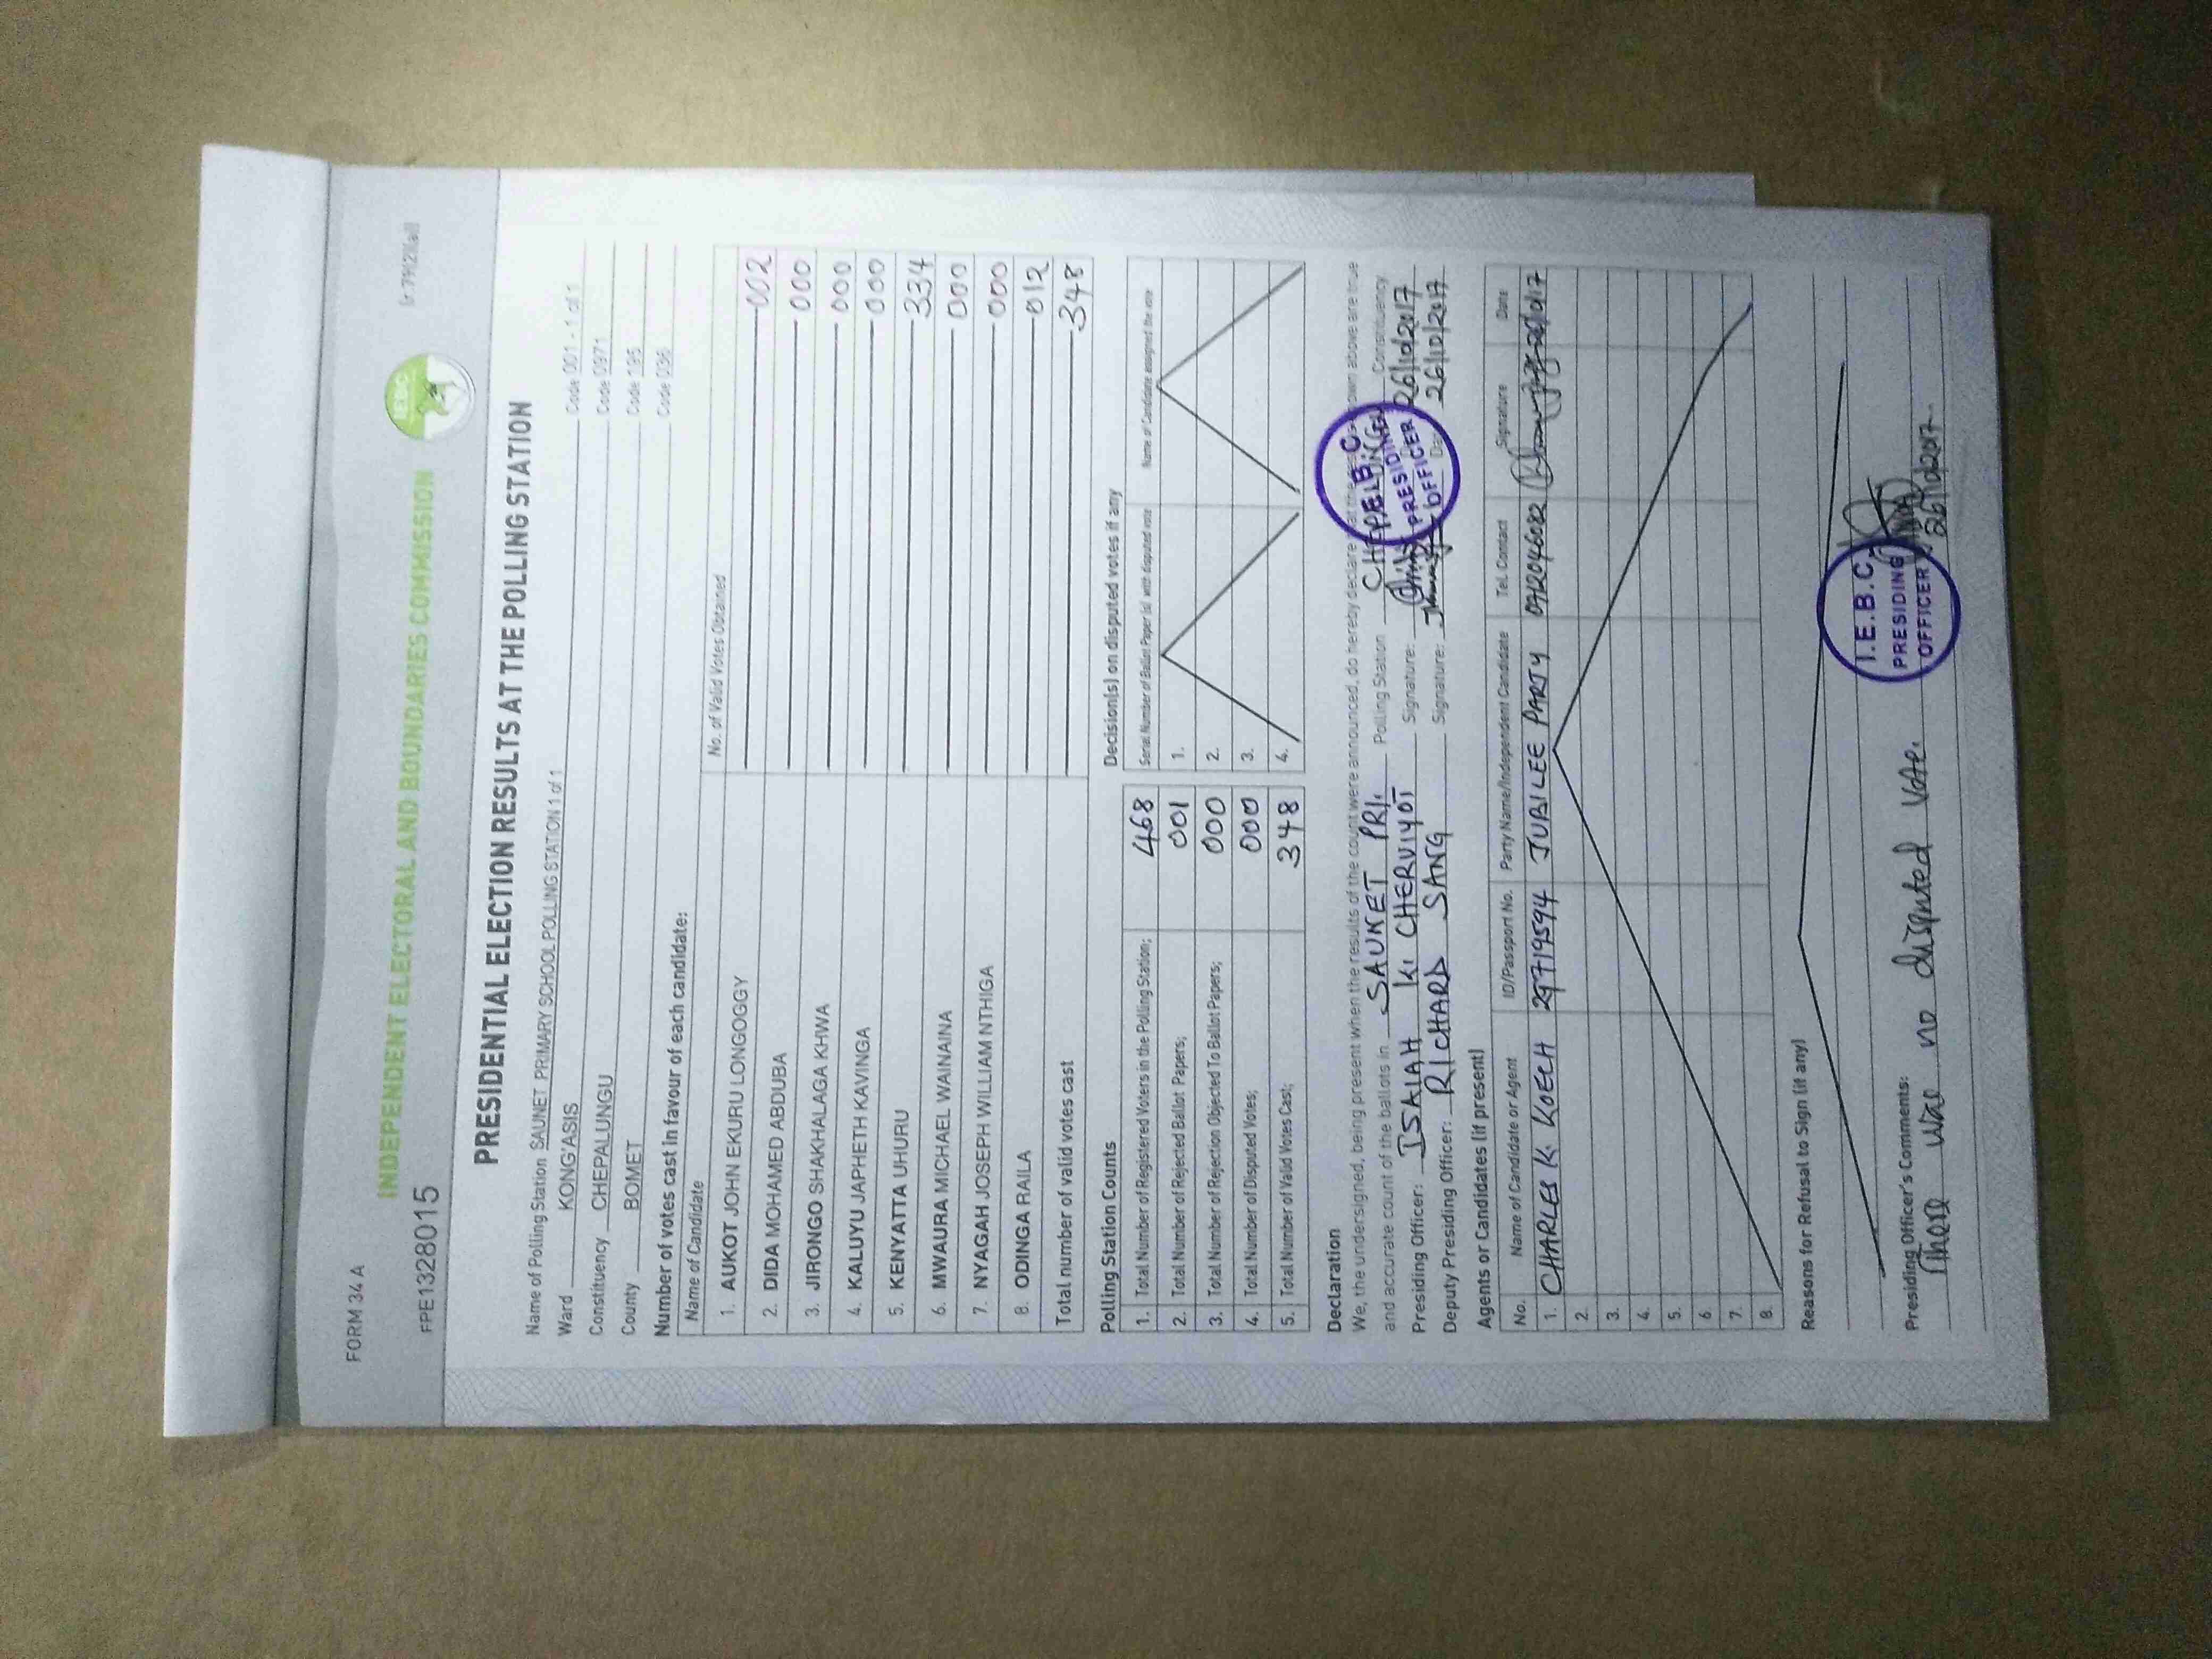 FORM 34 A
(r.79(2)(a))
INDEPENDENT ELECTORAL AND BOUNDARIES COMMISSION
IEBC
FPE13280015
PRESIDENTIAL ELECTION RESULTS AT THE POLLING STATION
Name of Polling Station SAUNET PRIMARY SCHOOL POLLING STATION 1 of 1 Code 001 - 1 of 1
Ward KONG'ASIS Code 0971
Constituency CHEPALUNGU Code 195
County BOMET Code 036
Number of votes cast in favour of each candidate:
Name of Candidate No. of Valid Votes Obtained
1. AUKOT JOHN EKURU LONGOGGY 002
2. DIDA MOHAMED ABDUBA 000
3. JIRONGO SHAKHALAGA KHWA 000
4. KALUYU JAPHETH KAVINGA 000
5. KENYATTA UHURU 334
6. MWAURA MICHAEL WAINAINA 000
7. NYAGAH JOSEPH WILLIAM NTHIGA 000
8. ODINGA RAILA 012
Total number of valid votes cast 348
Polling Station Counts
1. Total Number of Registered Voters in the Polling Station; 468
2. Total Number of Rejected Ballot Papers; 001
3. Total Number of Rejection Objected To Ballot Papers; 000
4. Total Number of Disputed Votes; 000
5. Total Number of Valid Votes Cast; 348
Decision(s) on disputed votes if any
Serial Number of Ballot Paper (s) with disputed vote Name of Candidate assigned the vote
1.
2.
3.
4.
Declaration
We, the undersigned, being present when the results of the count were announced, do hereby declare that the shown above are true
and accurate count of the ballots in SAUNET PRI. Polling Station CHEPALUNGU Constituency
Presiding Officer: ISAIAH K. CHERUIYOT Signature: 26/10/2017
Deputy Presiding Officer: RICHARD SANG Signature: Date 26/10/2017
I.E.B.C.
PRESIDING
OFFICER
Agents or Candidates (if present)
No. Name of Candidate or Agent ID/Passport No. Party Name/Independent Candidate Tel. Contact Signature Date
1. CHARLES K. KOECH 29719594 JUBILEE PARTY 0712046082
2.
3.
4.
5.
6.
7.
8.
Reasons for Refusal to Sign (if any)
Presiding Officer's Comments:
There was no disputed vote.
I.E.B.C.
PRESIDING
OFFICER
26/10/2017